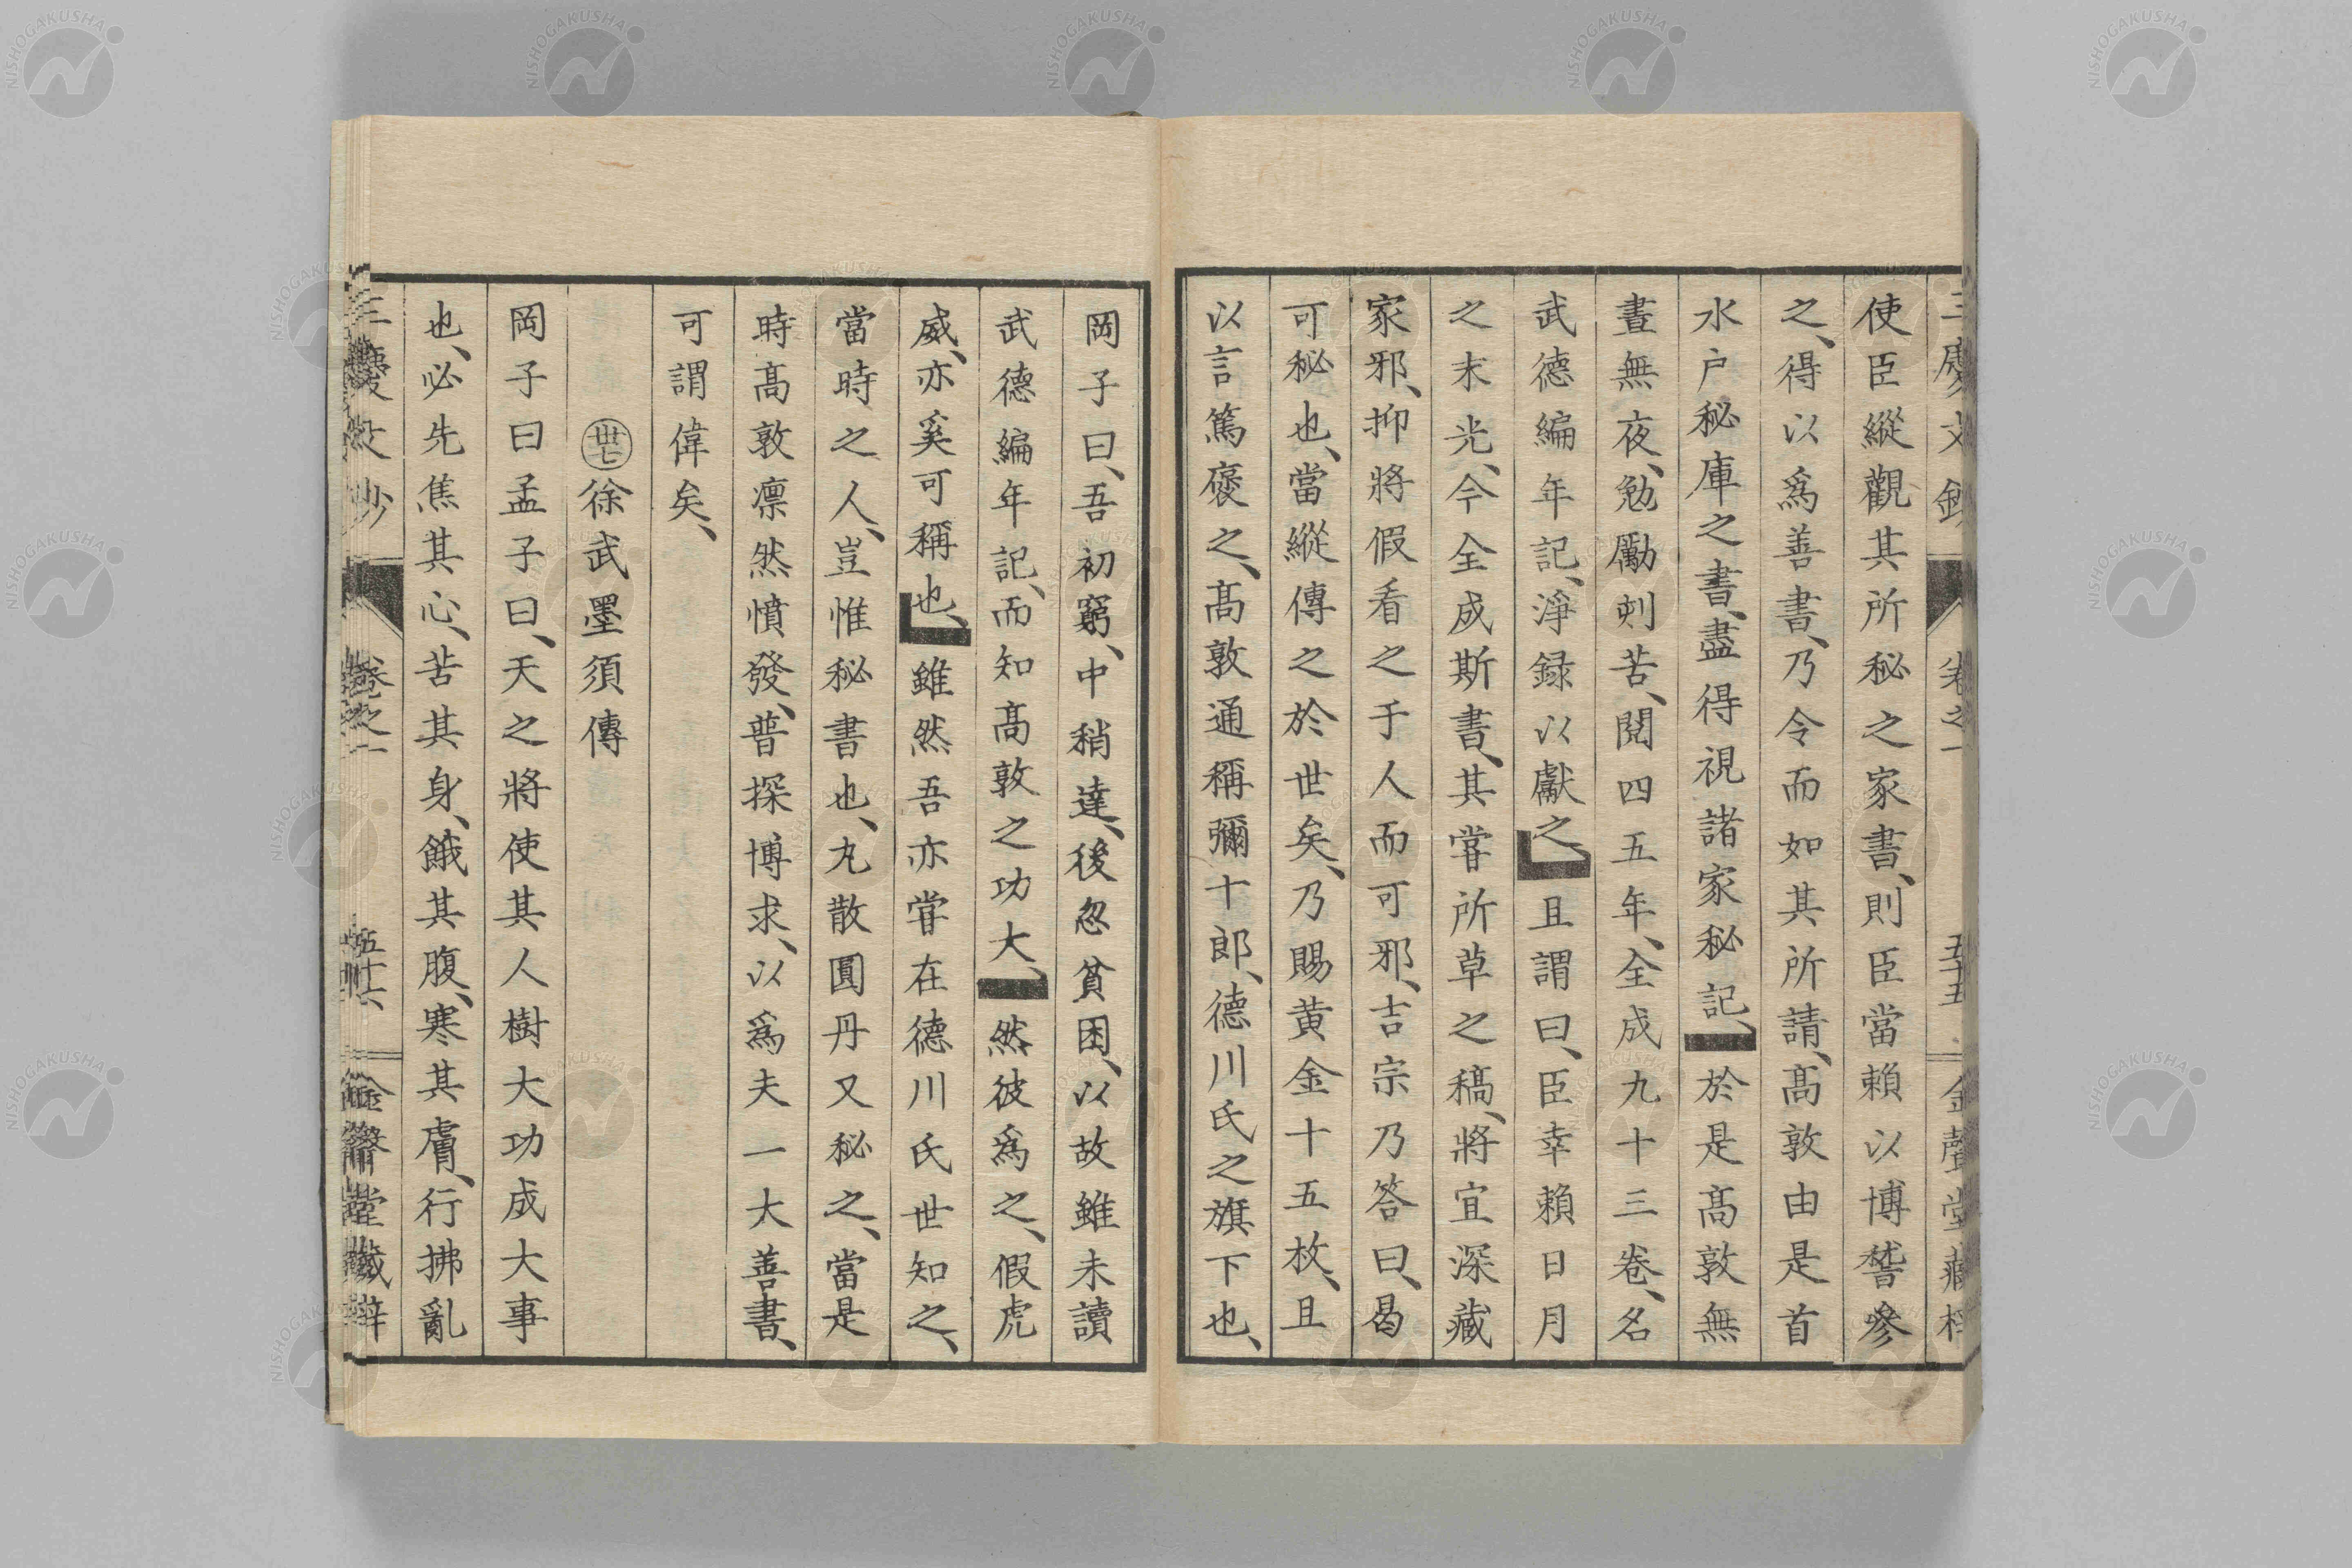 使臣縱觀其所秘之家書、則臣當賴以博瞽參
之、得以爲善書、乃令而如其所請、髙敦由是首
水户秘庫之書、盡得視諸家秘記、於是髙敦無
晝無夜、勉勵刺苦、閲四五年、全成九十三卷、名
武德編年記、淨録以獻之、且謂曰、臣幸賴日月
之末光、今全成斯書、其甞所草之稿、將宜深藏
家邪、抑將假看之于人而可邪、吉宗乃答曰、曷
可秘也、當縱傳之於世矣、乃賜黄金十五枚、且
以言篤褒之、髙敦通稱彌十郎、德川氏之旗下也、
岡子曰、吾初窮、中稍達、後忽貧困、以故雖未讀
武德編年記、而知髙敦之功大、然彼爲之、假虎
威、亦奚可稱也、雖然吾亦甞在德川氏世知之、
當時之人、豈惟秘書也、丸散圓丹又秘之、當是
時髙敦凛然憤發、普探博求、以爲夫一大善書、
可謂偉矣、
卅七徐武墨須傳
岡子曰孟子曰、天之將使其人樹大功成大事
也、必先焦其心、苦其身、餓其腹、寒其膚、行拂亂
卷之一
NISHOGAKUSHA